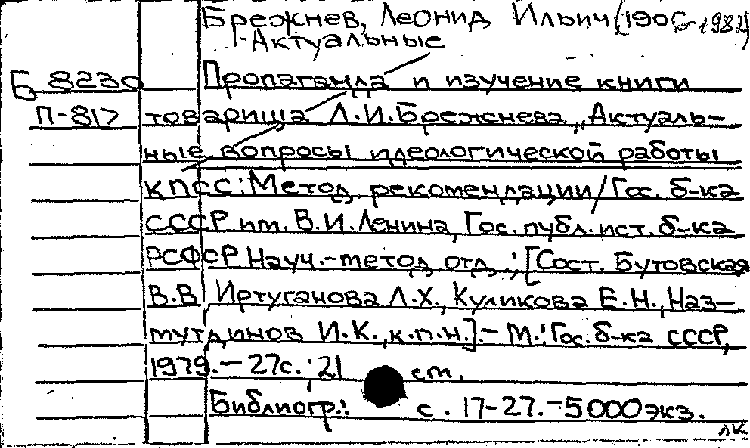 Брежнев, Леонид Ильич (1906-1982)
Актуальные
Б 8230 Пропаганда и изучение книги
П-817 товарища Л.И.Брежнева „Актуаль-
ные вопросы идеологической работы
КПСС: Метод. рекомендации/Гос. б-ка
СССР им. В.И.Ленина, Гос. публ. ист. б-ка
РСФСР Науч.-метод. отд.; [Сост. Бутовская
В.В. Иртуганова Л.Х., Куликова Е.Н., Наз-
мутдинов И.К., к.п.н.].- М.: Гос. б-ка СССР,
1979.- 27с.; 21 cm.
Библиогр.: с. 17-27.-5000экз.
лк